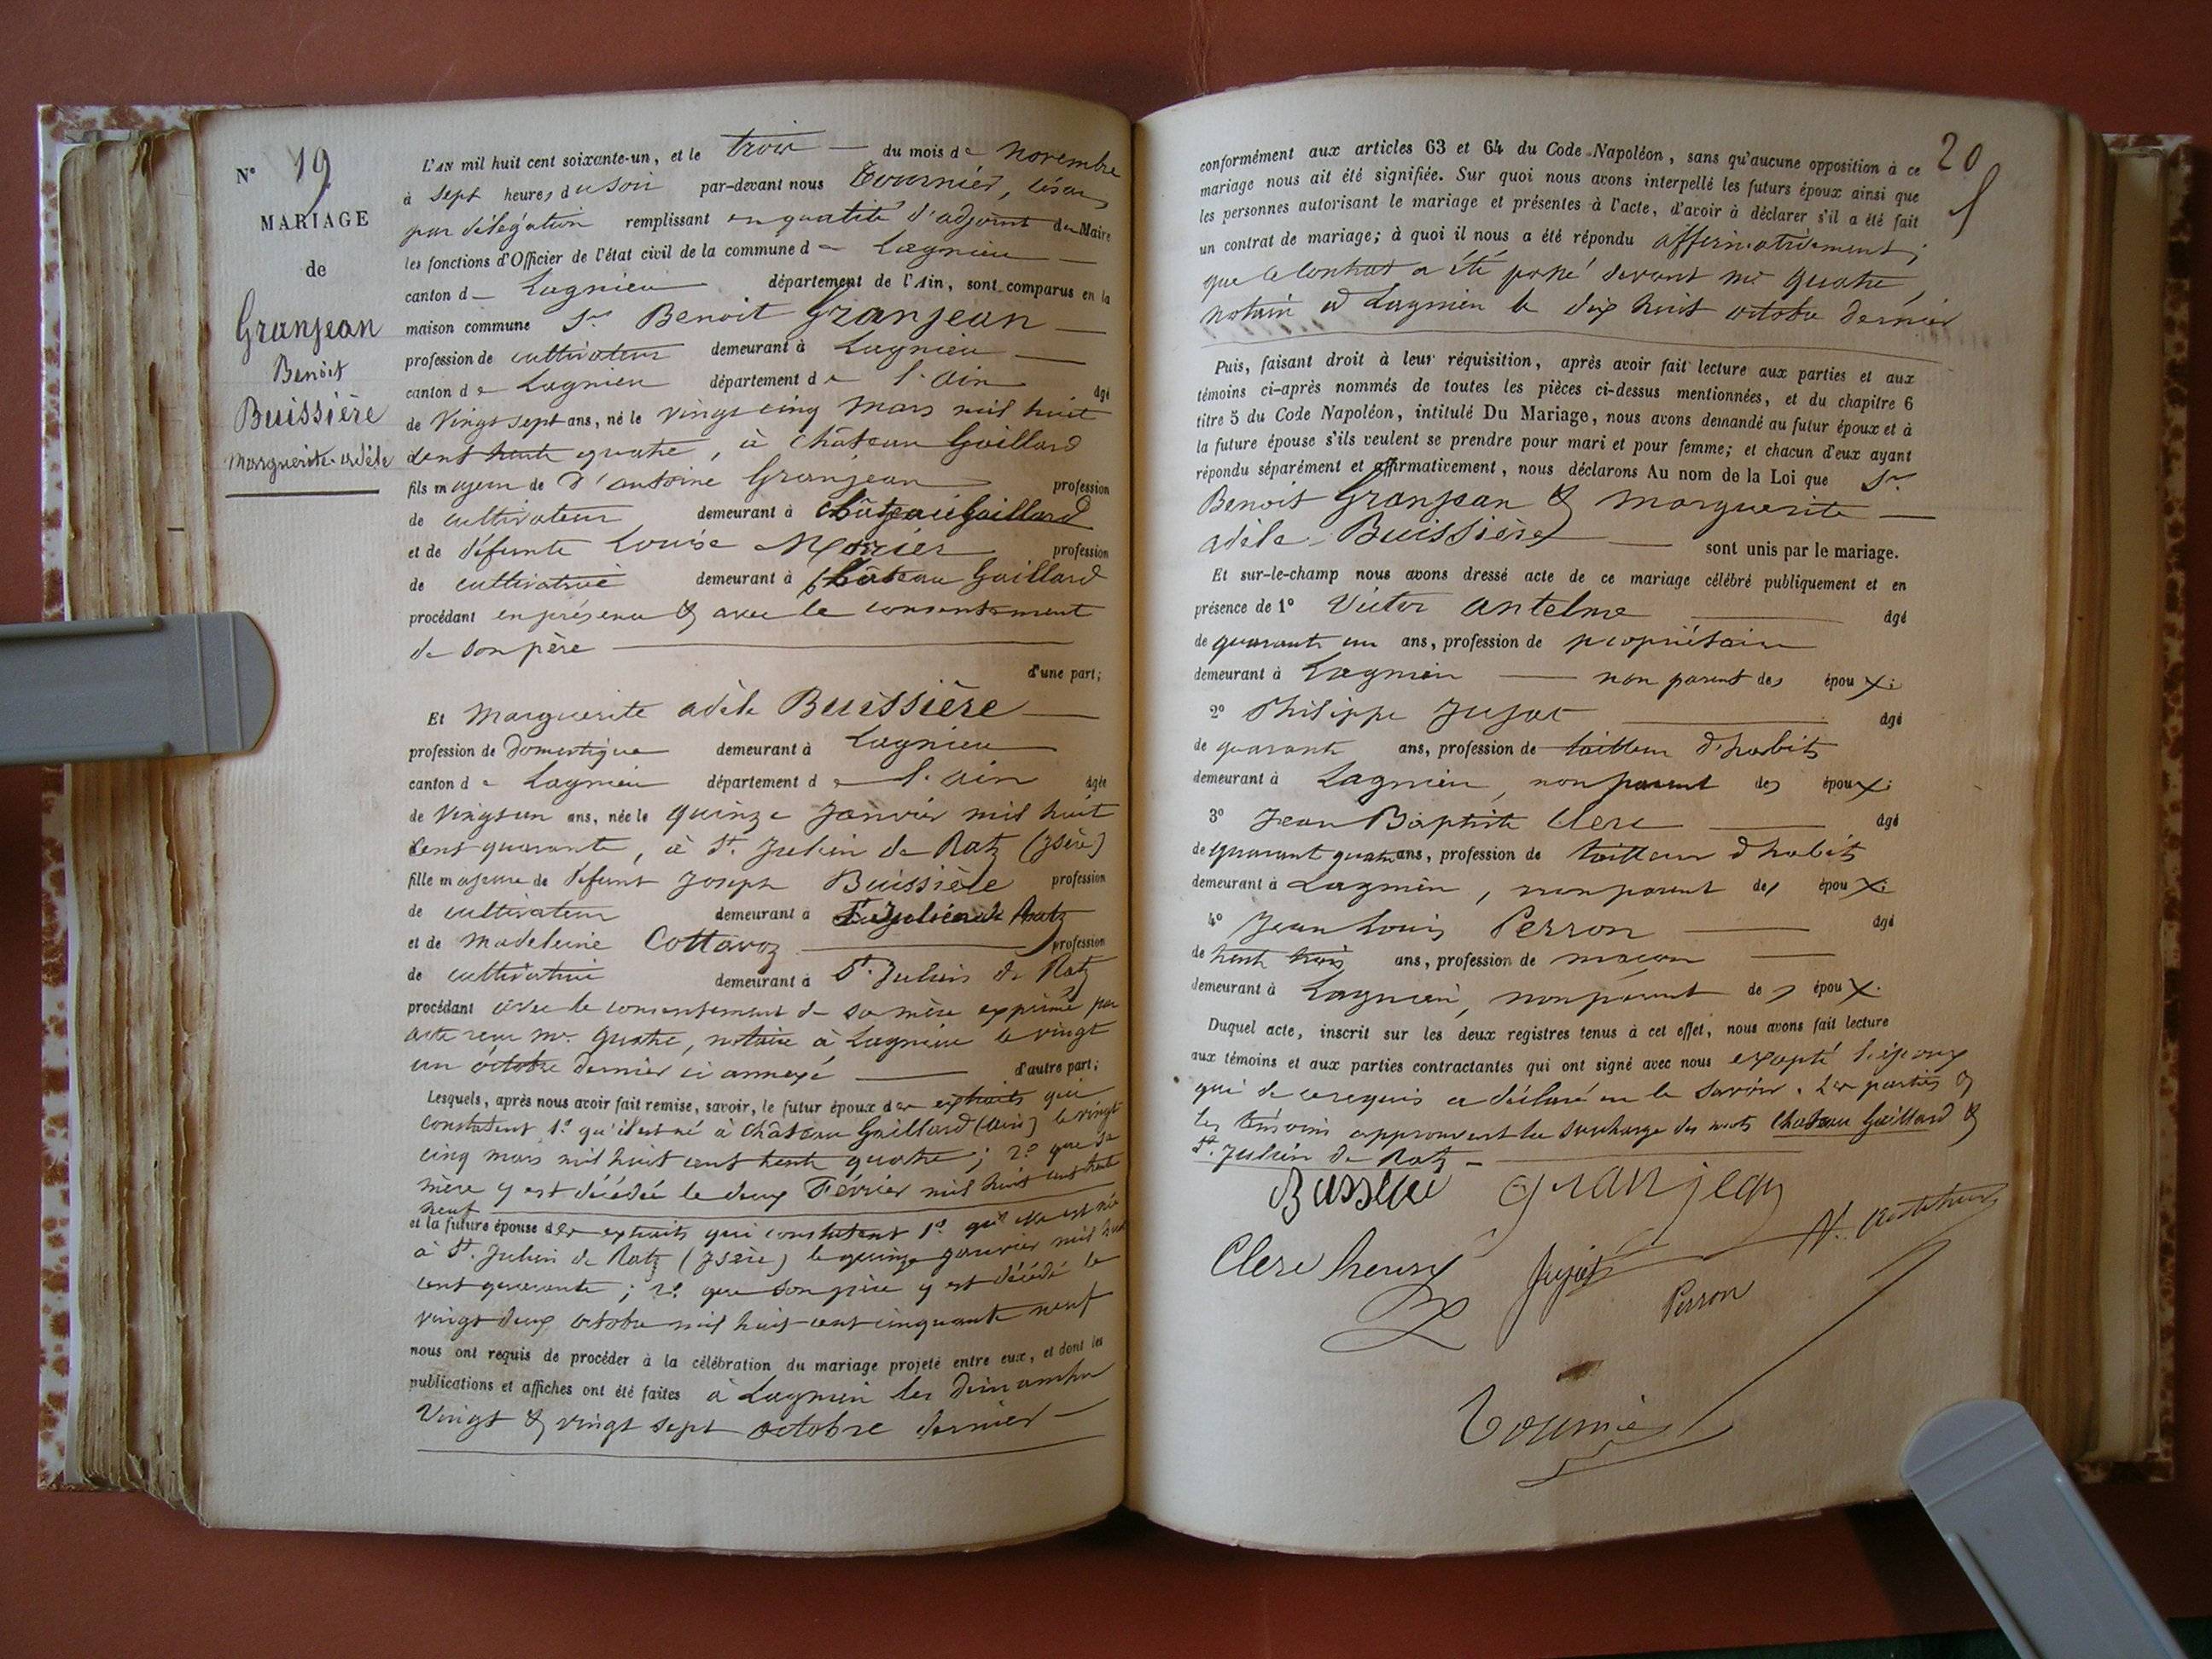 N° 19
MARIAGE
de
Granjean
Benoit
Buissière
Marguerite adèle
L'AN mil huit cent soixante-un, et le trois du mois de novembre
à sept heures du soir par-devant nous Tournier, César
par délégation remplissant en qualité d'adjoint du Maire
les fonctions d'Officier de l'état civil de la commune de Lagnieu
canton de Lagnieu département de l'Ain, sont comparus en la
maison commune Sr Benoit Granjean
profession de cultivateur demeurant à Lagnieu
canton de Lagnieu département de l'ain âgé
de Vingt sept ans, né le vingt cinq mars mil huit
cent trente quatre, à Château Gaillard
fils majeur de d'antoine Granjean profession
de cultivateur demeurant à Château Gaillard
et de défunte Louise profession
de cultivatrice demeurant à Château Gaillard
procédant en présence & avec le consentement
de son père
d'une part;
Et Marguerite adèle Buissière
profession de Domestique demeurant à Lagnieu
canton de Lagnieu département de l'ain âgée
de Vingt un ans, née le quinze Janvier mil huit
cent quarante, à St. Julien de Ratz (Isère)
fille majeure de défunt Joseph Buissière profession
de cultivateur demeurant à St Julien de Ratz
et de Madeleine Cottavoz profession
de cultivatrice demeurant à St. Julien de Ratz
procédant avec le consentement de sa mère exprimé par
acte reçu Me. Quatre, notaire à Lagnieu le vingt
un octobre dernier ci annexé d'autre part;
Lesquels, après nous avoir fait remise, savoir, le futur époux des extraits qui
constatent 1° qu'il est né à Château Gaillard (Ain) le vingt
cinq mars mil huit cent trente quatre; 2° que sa
mère y est décédée le deux Février mil huit cent trente
neuf
et la future épouse des extraits qui constatent 1° qu'elle est née
à St. Julien de Ratz (Isère) le quinze janvier mil huit
cent quarante; 2° que son père y est décédé le
vingt deux octobre mil huit cent cinquante neuf
nous ont requis de procéder à la célébration du mariage projeté entre eux, et dont les
publications et affiches ont été faites à Lagnieu les dimanches
Vingt & vingt sept octobre dernier
20
conformément aux articles 63 et 64 du Code Napoléon, sans qu'aucune opposition à ce
mariage nous ait été signifiée. Sur quoi nous avons interpellé les futurs époux ainsi que
les personnes autorisant le mariage et présentes à l'acte, d'avoir à déclarer s'il a été fait
un contrat de mariage; à quoi il nous a été répondu affirmativement;
que le contrat a été passé devant Me Quatre
notaire à Lagnieu le dix huit octobre dernier
Puis, faisant droit à leur réquisition, après avoir fait lecture aux parties et aux
témoins ci-après nommés de toutes les pièces ci-dessus mentionnées, et du chapitre 6
titre 5 du Code Napoléon, intitulé Du Mariage, nous avons demandé au futur époux et à
la future épouse s'ils veulent se prendre pour mari et pour femme; et chacun d'eux ayant
répondu séparément et affirmativement, nous déclarons Au nom de la Loi que Sr
Benoit Granjean & Marguerite
adèle Buissière sont unis par le mariage.
Et sur-le-champ nous avons dressé acte de ce mariage célébré publiquement et en
présence de 1° Victor Antelme âgé
de quarante un ans, profession de propriétaire
demeurant à Lagnieu non parent des époux;
2° Philippe Jujat âgé
de quarante ans, profession de tailleur d'habits
demeurant à Lagnieu, non parent des époux;
3° Jean Baptiste Clerc âgé
de quarante quatre ans, profession de tailleur d'habits
demeurant à Lagnieu, non parent des époux;
4° Jean Louis Perron âgé
de trente trois ans, profession de maçon
demeurant à Lagnieu, non parent des époux.
Duquel acte, inscrit sur les deux registres tenus à cet effet, nous avons fait lecture
aux témoins et aux parties contractantes qui ont signé avec nous excepté l'époux
qui de ce requis a déclaré ne le savoir. Les parties &
les témoins approuvent la surcharge des mots Chateau Gaillard &
St. Julien de Ratz
granjean
Clerc
Jujat
Perron
Tournier